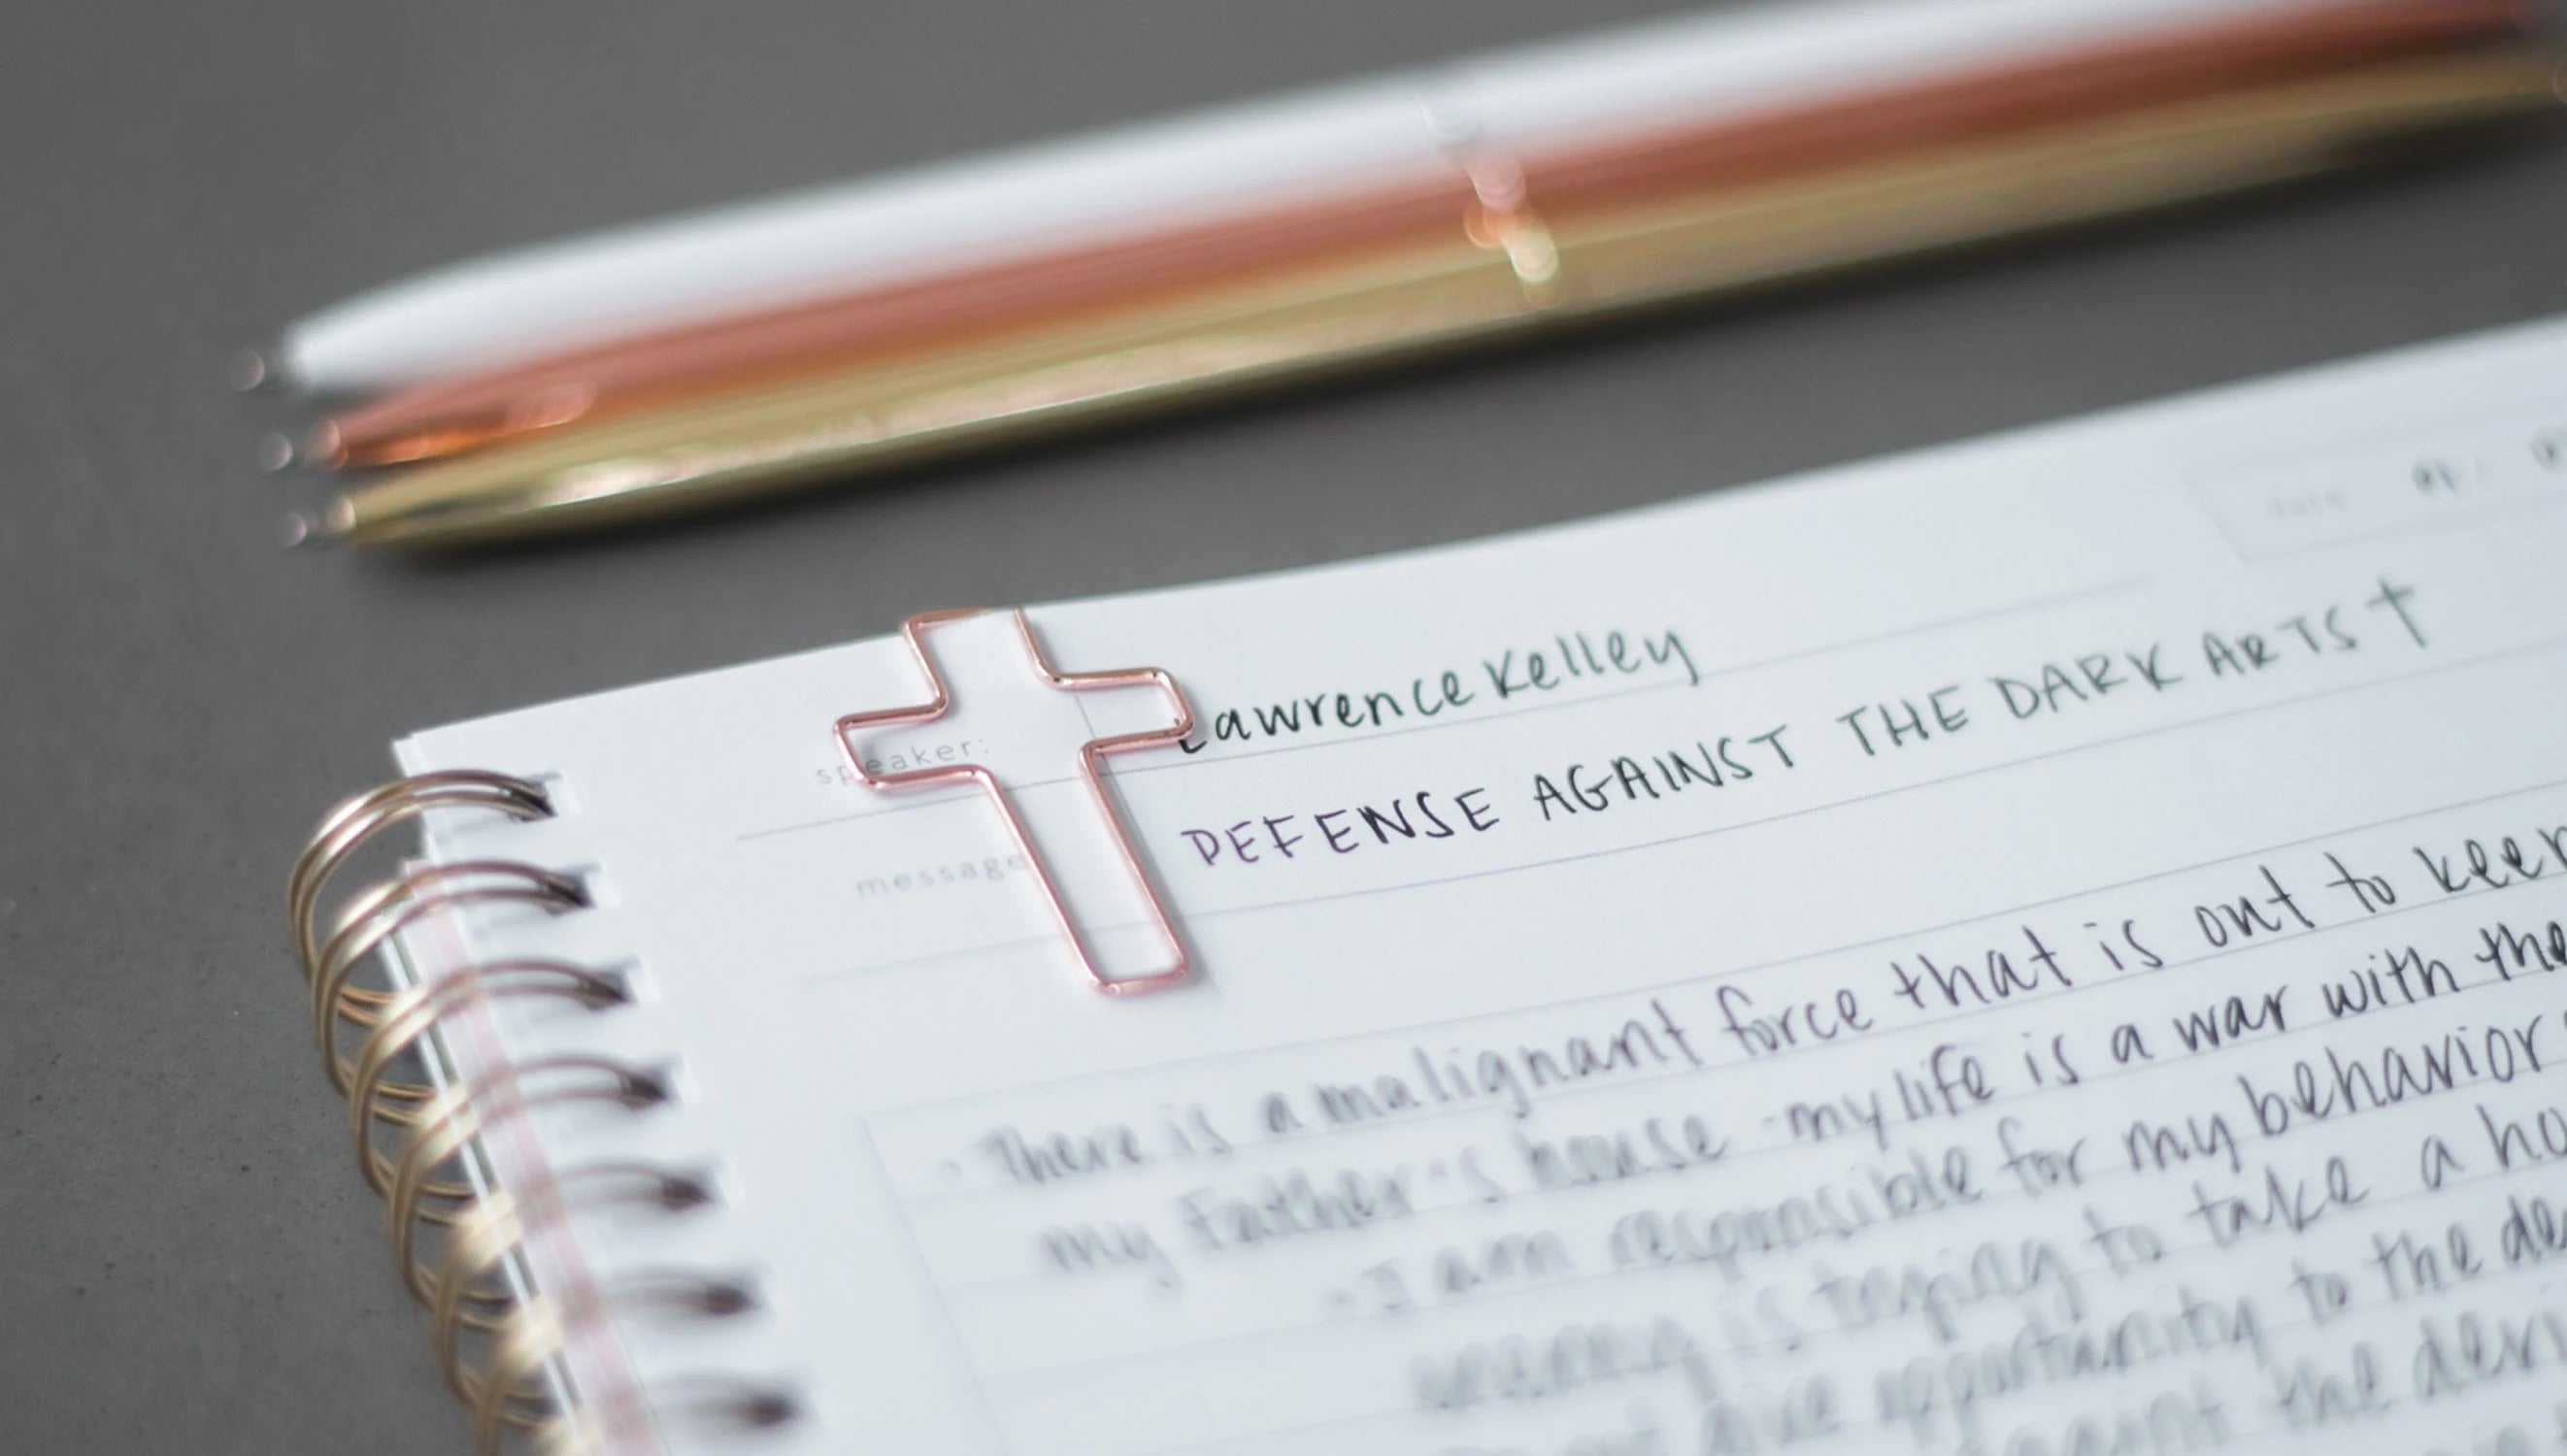 date
speaker: Lawrence Kelley
message DEFENSE AGAINST THE DARK ARTS †
· There is a malignant force that is out to keep
my Father's house - my life is a war with the
- I am responsible for my behavior
enemy is trying to take a
give opportunity to the
the